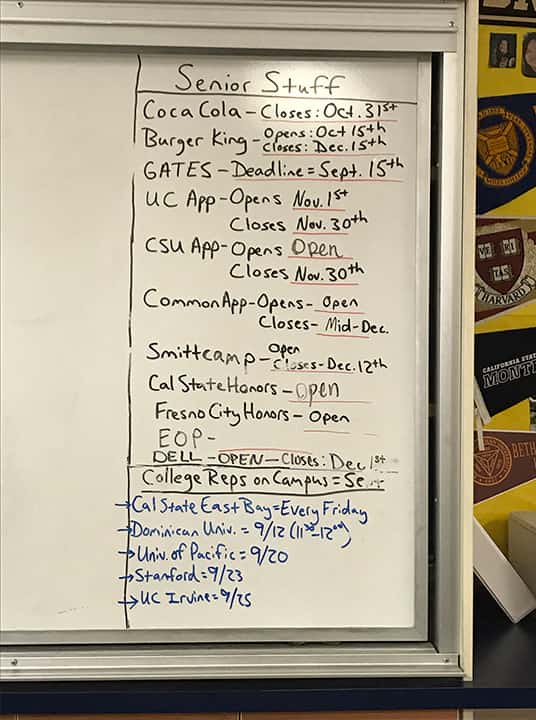 Senior Stuff
Coca Cola - Closes: Oct. 31st
Burger King - Opens: Oct 15th
Closes: Dec. 15th
GATES - Deadline = Sept. 15th
UC App - Opens Nov. 1st
Closes Nov. 30th
CSU App - Opens Open
Closes Nov. 30th
Common App - Opens - Open
Closes - Mid-Dec.
Smittcamp - Open
Closes - Dec. 12th
Cal State Honors - Open
Fresno City Honors - Open
EOP -
DELL - OPEN - Closes: Dec 1st
College Reps on Campus =
→ Cal State East Bay = Every Friday
→ Dominican Univ. = 9/12
→ Univ. of Pacific = 9/20
→ Stanford = 9/23
→ UC Irvine = 9/25
VE RI TAS
HARVARD
CALIFORNIA STATE
MONT
BETH